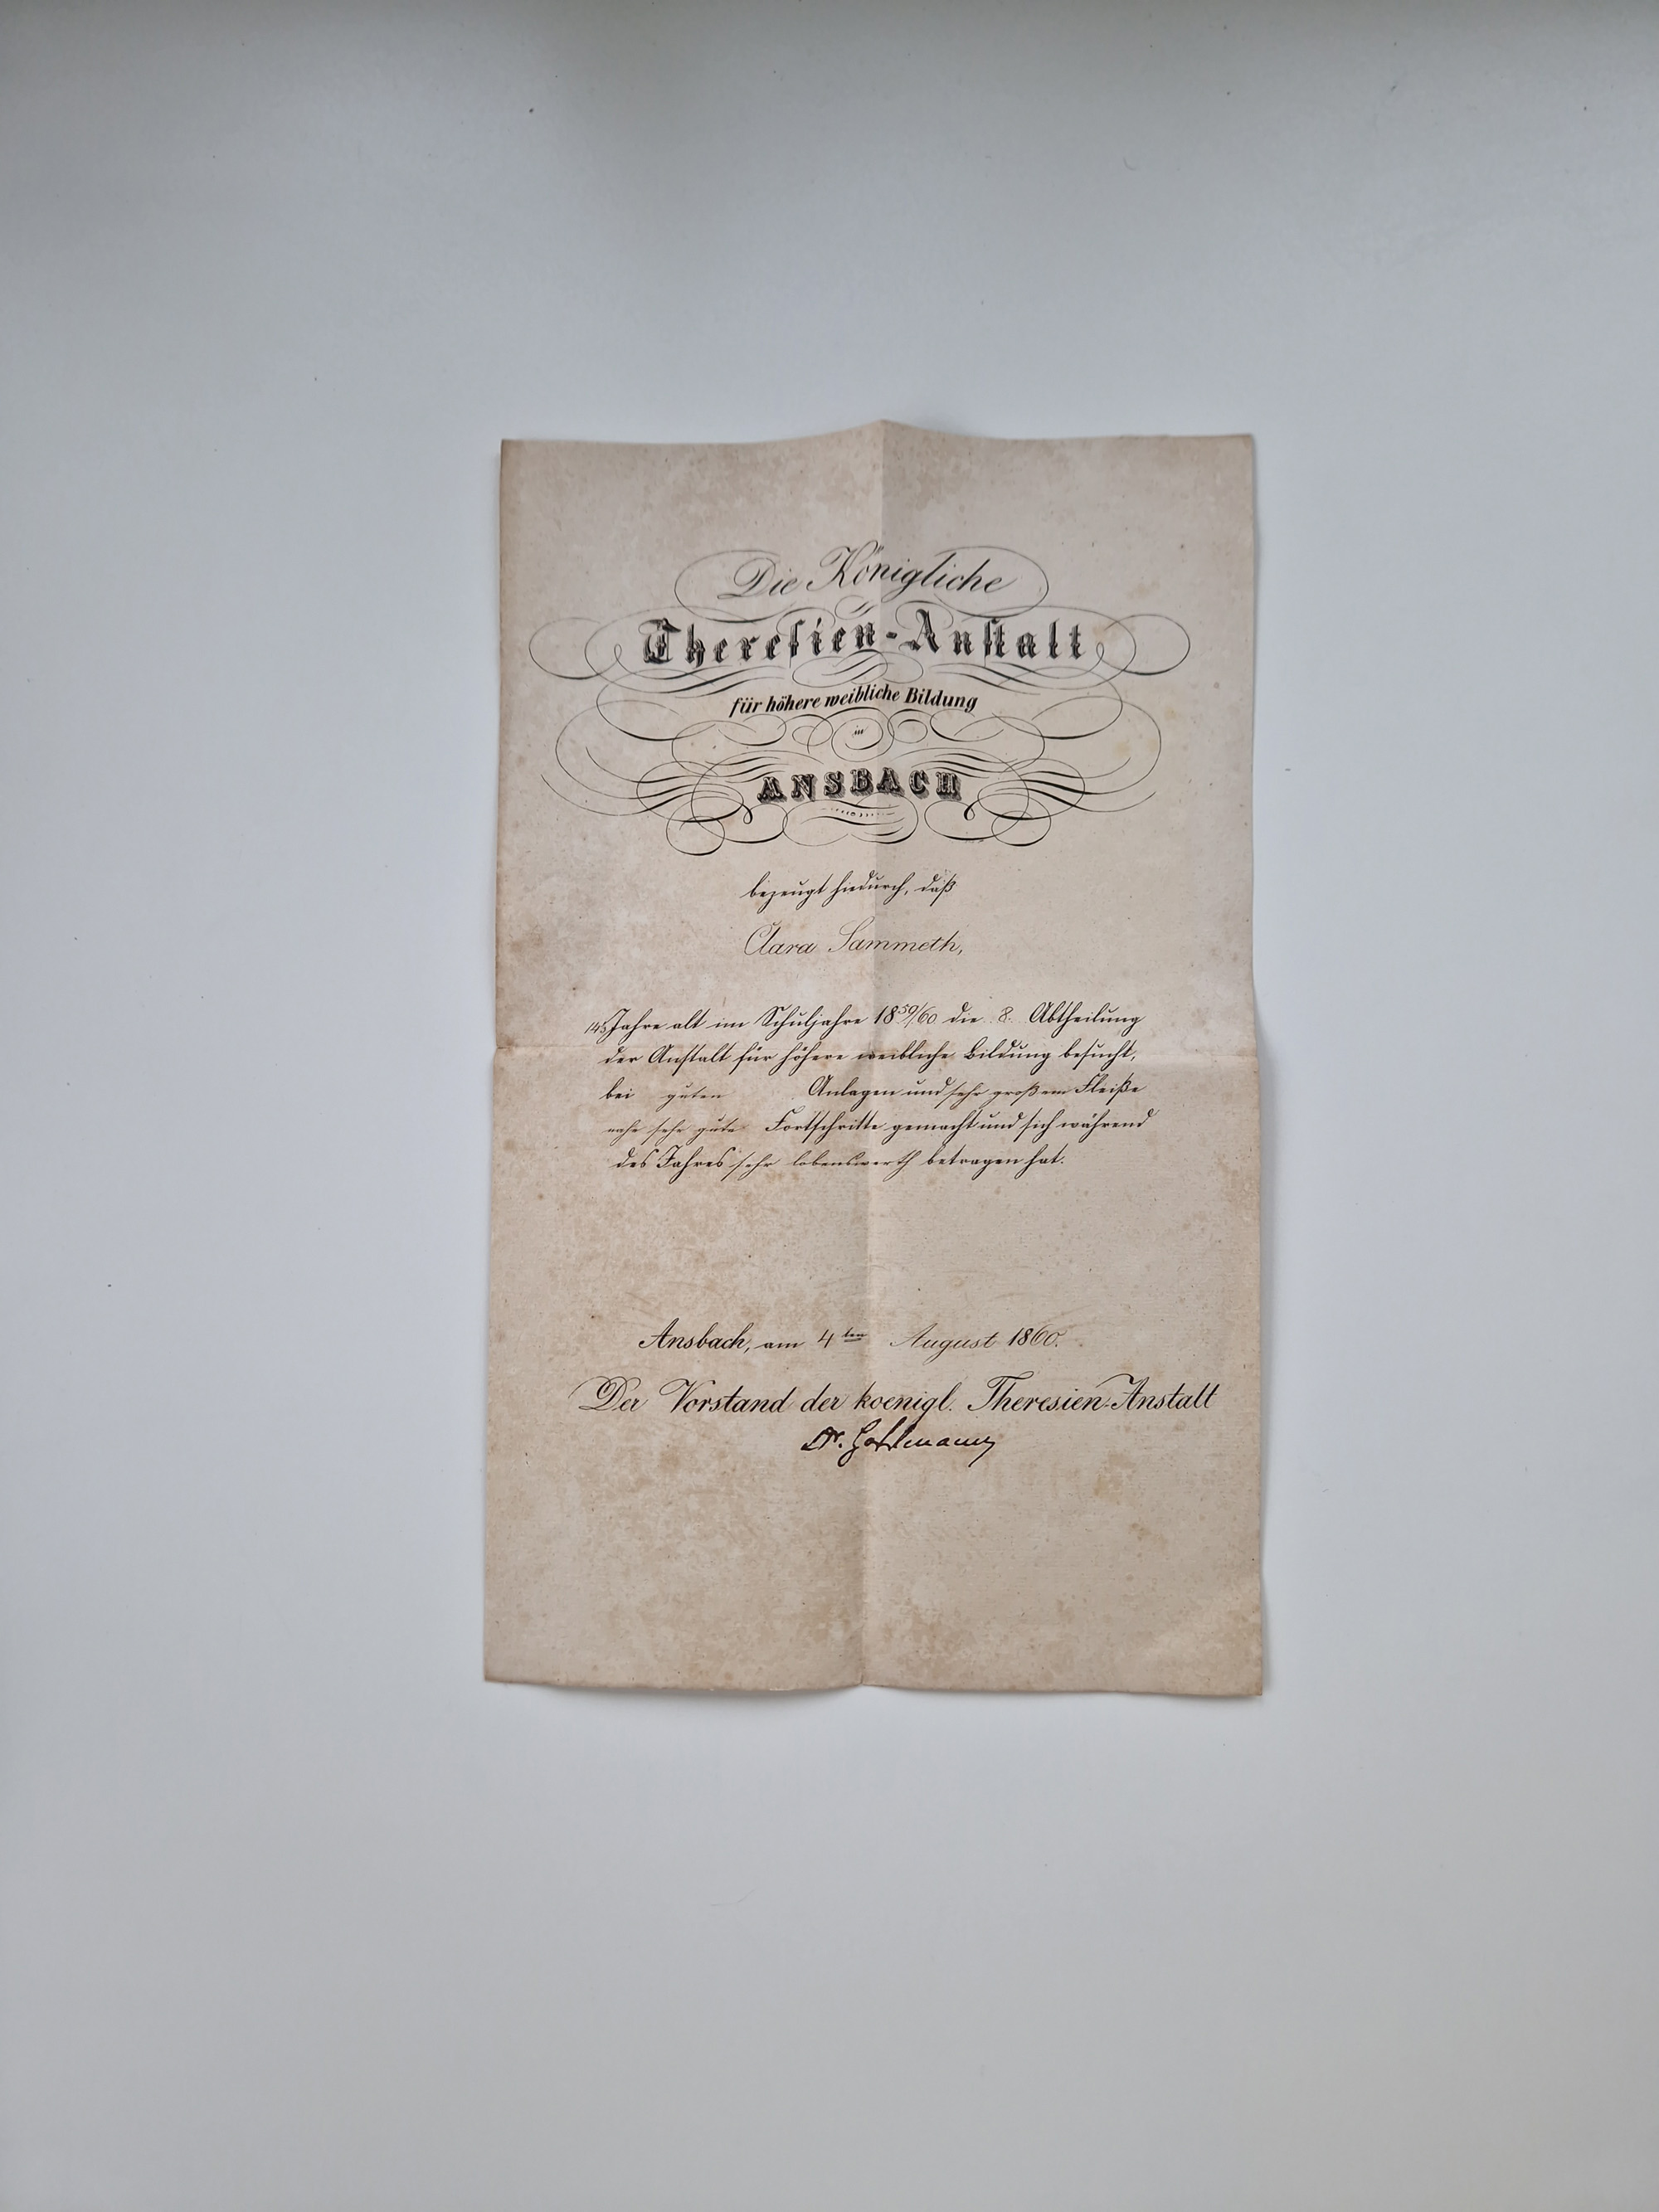 Die Königliche
Theresien-Anstalt
für höhere weibliche Bildung
in
ANSBACH
bezeugt hiedurch, daß
Clara Sammeth,
Jahre alt im Schuljahre 1859/60 die 8. Abtheilung
der Anstalt für höhere weibliche Bildung besucht,
bei guten Anlagen und sehr großem Fleiße
nahe sehr gute Fortschritte gemacht und sich während
des Jahres sehr lobenswerth betragen hat.
Ansbach, am 4ten August 1860.
Der Vorstand der koenigl. Theresien-Anstalt
Dr.